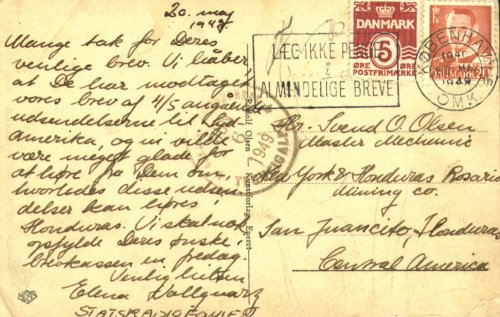 20. maj
1949.
Mange tak for Deres
venlige brev. Vi haaber
at De har modtaget
vores brev af 4/5 angaaende
udsendelserne til
Amerika, og vi ville
være meget glade for
at høre fra Dem om,
hvorledes disse udsen-
delser kan høres i
Honduras. Vi skal nok
opfylde Deres ønske i
brevkassen en fredag.
Venlig hilsen
Elena
STATSRADIOFONIEN
LÆG IKKE PENGE
i
ALMINDELIGE BREVE
DANMARK
5
ØRE ØRE
POSTFRIMÆRKE
KØBENHAVN
OMK.
DANMARK 20
1949
Rudolf Olsens Kunstforlag Eneret
Hr. Svend O. Olsen
Master Mechanic
New York & Honduras Rosario
Mining Co.
San Juancito, Honduras
Central America